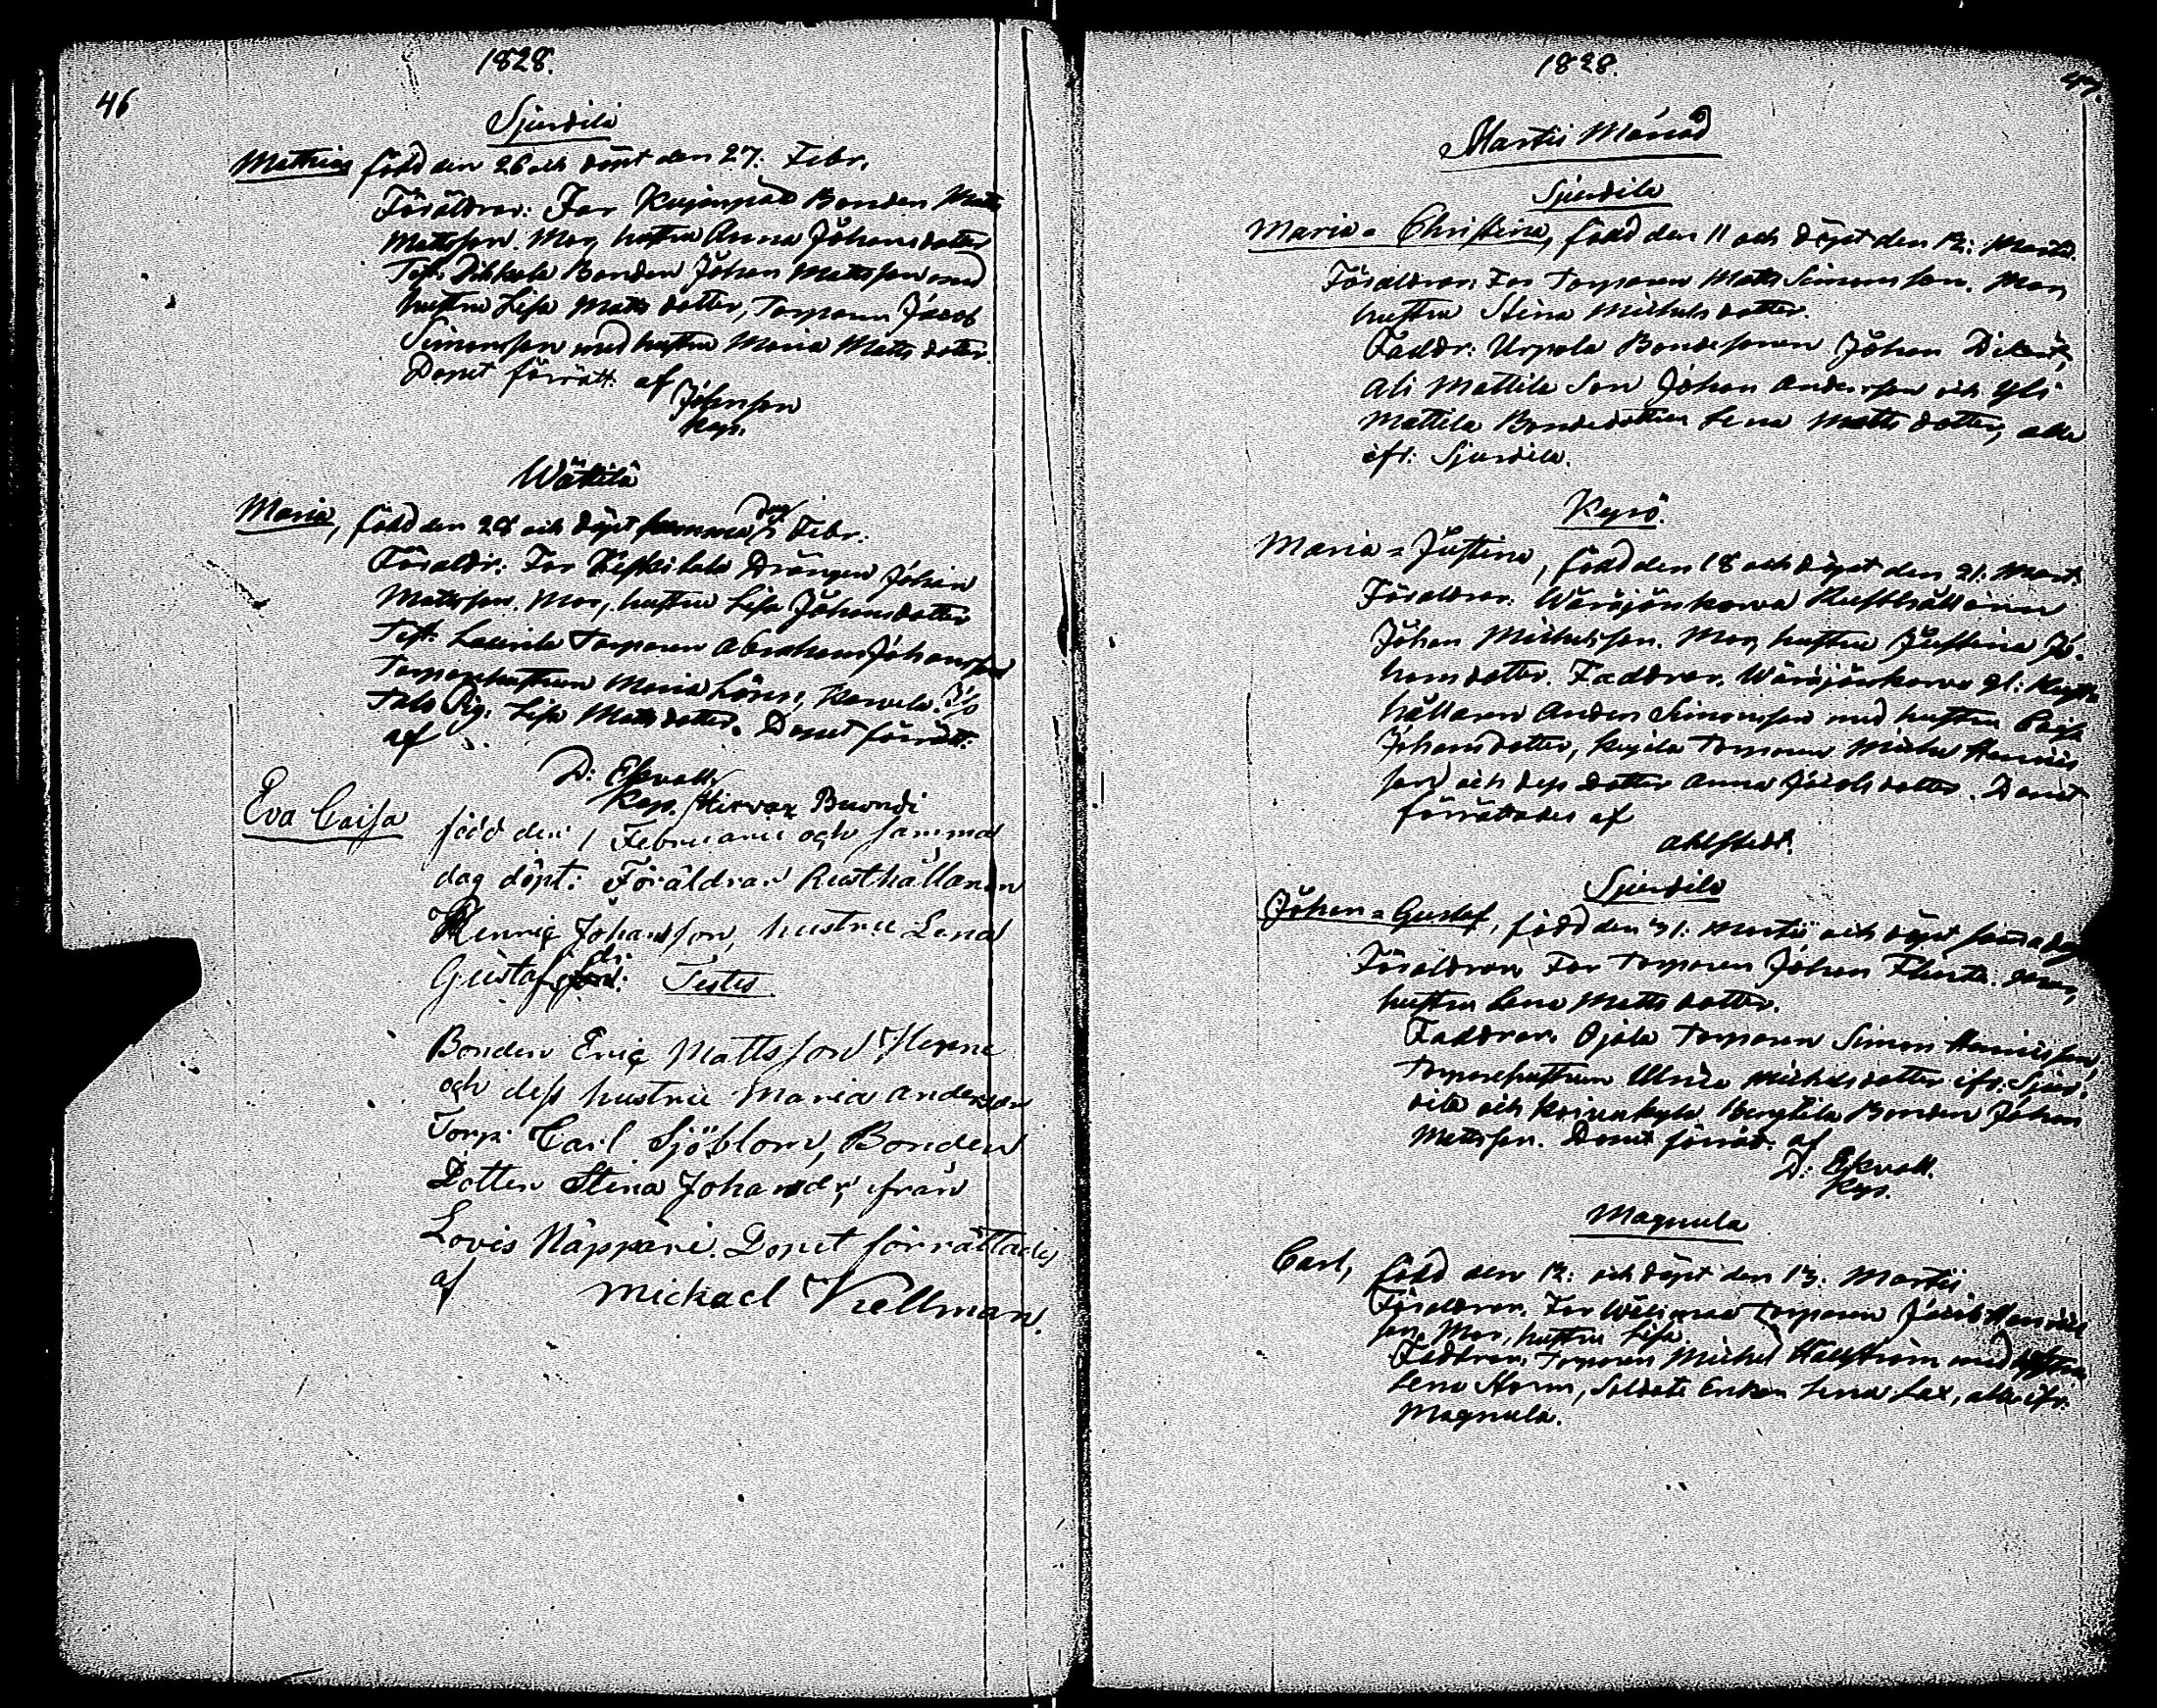 1828.
46
Sjundila
Mathias född den 26 och döpt den 27. Febr.
Föräldrar: Far Bonden Matts
Mattsson. Mor, hustru Anna Johansdotter
Test. Dikkala Bonden Johan Mattsson med
hustru Lisa Mattsdotter, Torparen Jacob
Simonsson med hustru Maria Mattsdotter.
Dopet förrätt. af
Johnsson
Kap.
Wättilä
Maria, född den 28 och döpt samma dag Febr.
Föräldr: Far Drängen Johan
Mattsson. Mor, hustru Lisa Johansdotter
Test. Laurila Torparen Abraham Johansson
Torparehustrun Maria
Pig. Lisa Mattsdotter. Dopet förrätt.
af
D: Ekvall
Kap.
Eva Caisa
född den 1 Februarii och samma
dag döpt. Föräldrar Rusthållaren
Henric Johansson, hustru Lena
Gustafsdr: Testes
Bonden Eric Mattsson
och dess hustru Maria Andersdr
Torp. Carl Sjöblom, Bonden
Dotter Stina Johansdr, ifrån
Lovis Näppäri. Dopet förrättades
af Michael Kellman.
1828.
47.
Martii Månad
Sjundila
Maria=Christina, född den 11 och döpt den 12: Martii.
Föräldrar: Far Torparen Matts Simonsson. Mor,
hustru Stina Michelsdotter.
Faddr: Urpola Bondesonen Johan
Ali Mattila Son Johan Andersson och Yli
Mattila Bondedottren Lena Mattsdotter, alla
ifr: Sjundila.
Kyrö.
Maria=Justina, född den 18 och döpt den 21. Mart.
Föräldrar: Rusthållaren
Johan Michelsson. Mor, hustru Justina Jo-
hansdotter. Faddrar. gl: Rust-
hållaren Anders Simonsson med hustru
Johansdotter, Torparen Michel Henrics
son och dess dotter Anna Jacobsdotter. Dopet
förrättades af
Ahlstedt.
Sjundila
Johan=Gustaf, född den 31. Martii och döpt samma dag
Föräldrar. Far Torparen Johan. Mor,
hustru Lena Mattsdotter.
Faddrar. Ojala Torparen Simon Henricsson,
Torparehustrun Ulrica Michelsdotter ifr. Sjun-
dila och Bonden Johan
Mattsson. Dopet förrätt. af
D: Ekvall.
Kap.
Magnula
Carl, född den 12: och döpt den 13. Martii
Föräldrar. Far Torparen Jacob Henrics
son. Mor, hustru Lisa.
Faddrar. Torparen Michel Hällström med hustru
Lena Storm, Soldats Enkan Lena Lax, alla ifr.
Magnula.